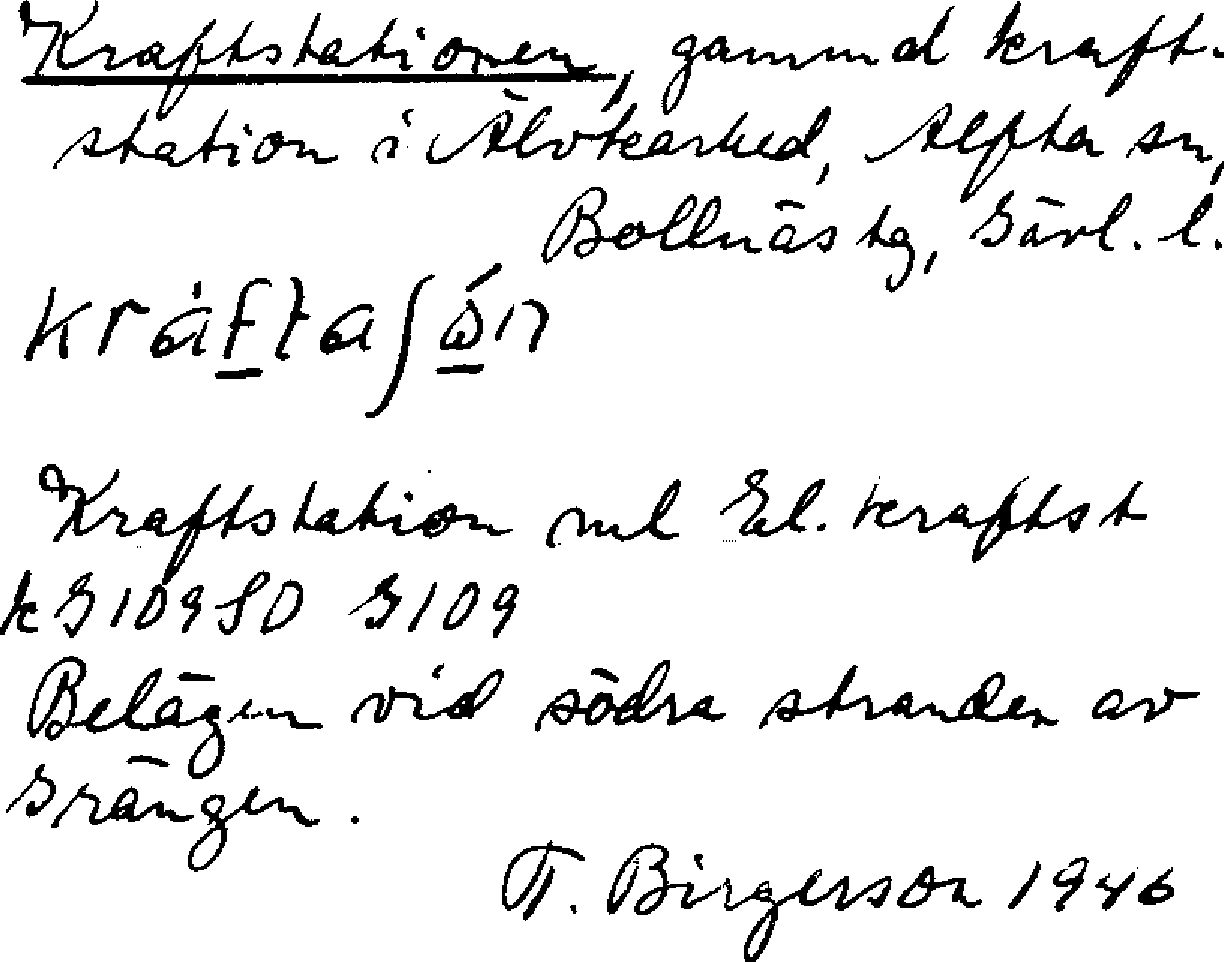 Kraftstationen, gammal kraft-
station i Älvkarhed, Alfta sn,
Bollnäs tg, Gävl. l.
kràftaʃǿn
Kraftstation ml El. kraftst
k G109SO G109
Belägen vid södra stranden av
Grängen.
T. Birgerson 1946